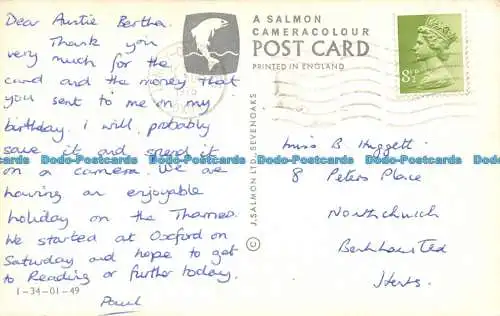 Dear Auntie Bertha,
Thank you
very much for the
card and the money that
you sent to me on my
birthday. I will probably
save it and spend it
on a camera. We are
having an enjoyable
holiday on the Thames.
We started at Oxford on
Saturday and hope to get
to Reading or further today.
Paul
1-34-01-49
A SALMON
CAMERACOLOUR
POST CARD
PRINTED IN ENGLAND
J. SALMON LTD., SEVENOAKS ©
8½P
Miss B. Huggett
8 Peters Place
Northchurch
Berkhamsted
Herts.
Dodo-Postcards Dodo-Postcards Dodo-Postcards Dodo-Postcards Dodo-Postcards